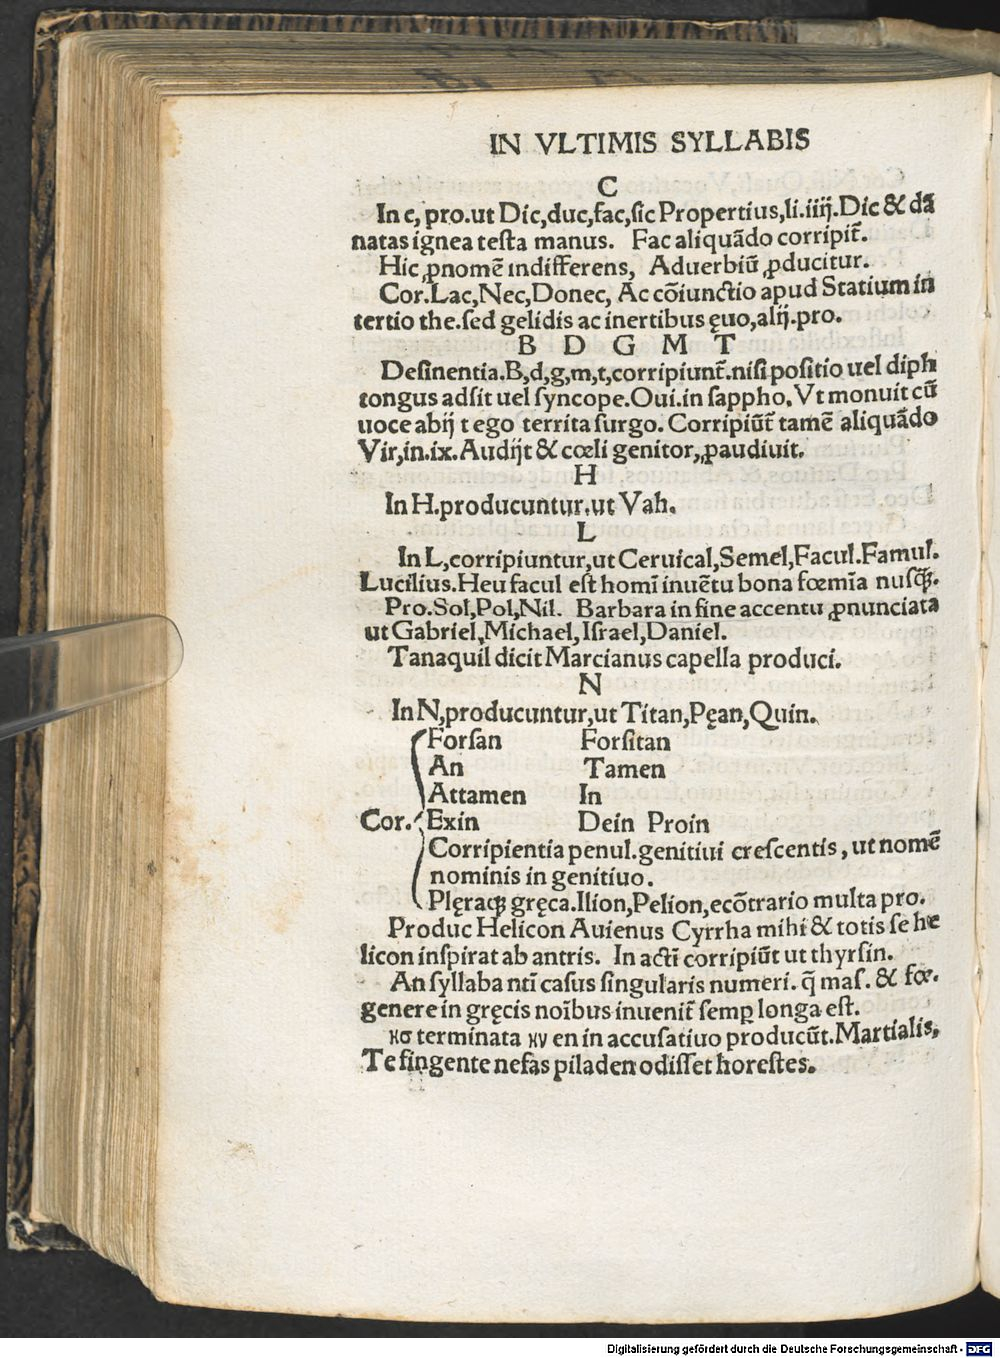 IN VLTIMIS SYLLABIS
C
In c, pro.ut Dic,duc,fac,sic Propertius,li.iiij.Dic & dā
natas ignea testa manus. Fac aliquādo corripit̄.
Hic ꝓnomē indifferens, Aduerbiū ꝓducitur.
Cor.Lac,Nec,Donec, Ac cōiunctio apud Statium in
tertio the.sed gelidis ac inertibus ęuo,alij.pro.
B D G M T
Desinentia.B,d,g,m,t,corripiunt̄.nisi positio uel diph
tongus adsit uel syncope.Oui.in sappho.Vt monuit cū
uoce abij t ego territa surgo. Corripiūt̄ tamē aliquādo
Vir,in.ix.Audijt & cœli genitor,ꝓaudiuit.
H
In H.producuntur,ut Vah.
L
In L,corripiuntur,ut Ceruical,Semel,Facul.Famul.
Lucilius.Heu facul est homī inuētu bona fœmīa nusq̄ꝫ.
Pro.Sol,Pol,Nil. Barbara in fine accentu ꝓnunciata
ut Gabriel,Michael,Israel,Daniel.
Tanaquil dicit Marcianus capella produci.
N
In N,producuntur,ut Titan,Pęan,Quin.
Forsan Forsitan
An Tamen
Attamen In
Cor. Exin Dein Proin
Corripientia penul.genitiui crescentis, ut nomē
nominis in genitiuo.
Plęraqꝫ gręca.Ilion,Pelion,ecōtrario multa pro.
Produc Helicon Auienus Cyrrha mihi & totis se he
licon inspirat ab antris. In actī corripiūt ut thyrsin.
An syllaba ntī casus singularis numeri. q̄ mas. & fœ.
genere in gręcis noībus inuenit̄ semꝑ longa est.
ησ terminata ην en in accusatiuo producūt.Martialis,
Te fingente nefas piladen odisset horestes.
Digitalisierung gefördert durch die Deutsche Forschungsgemeinschaft - DFG